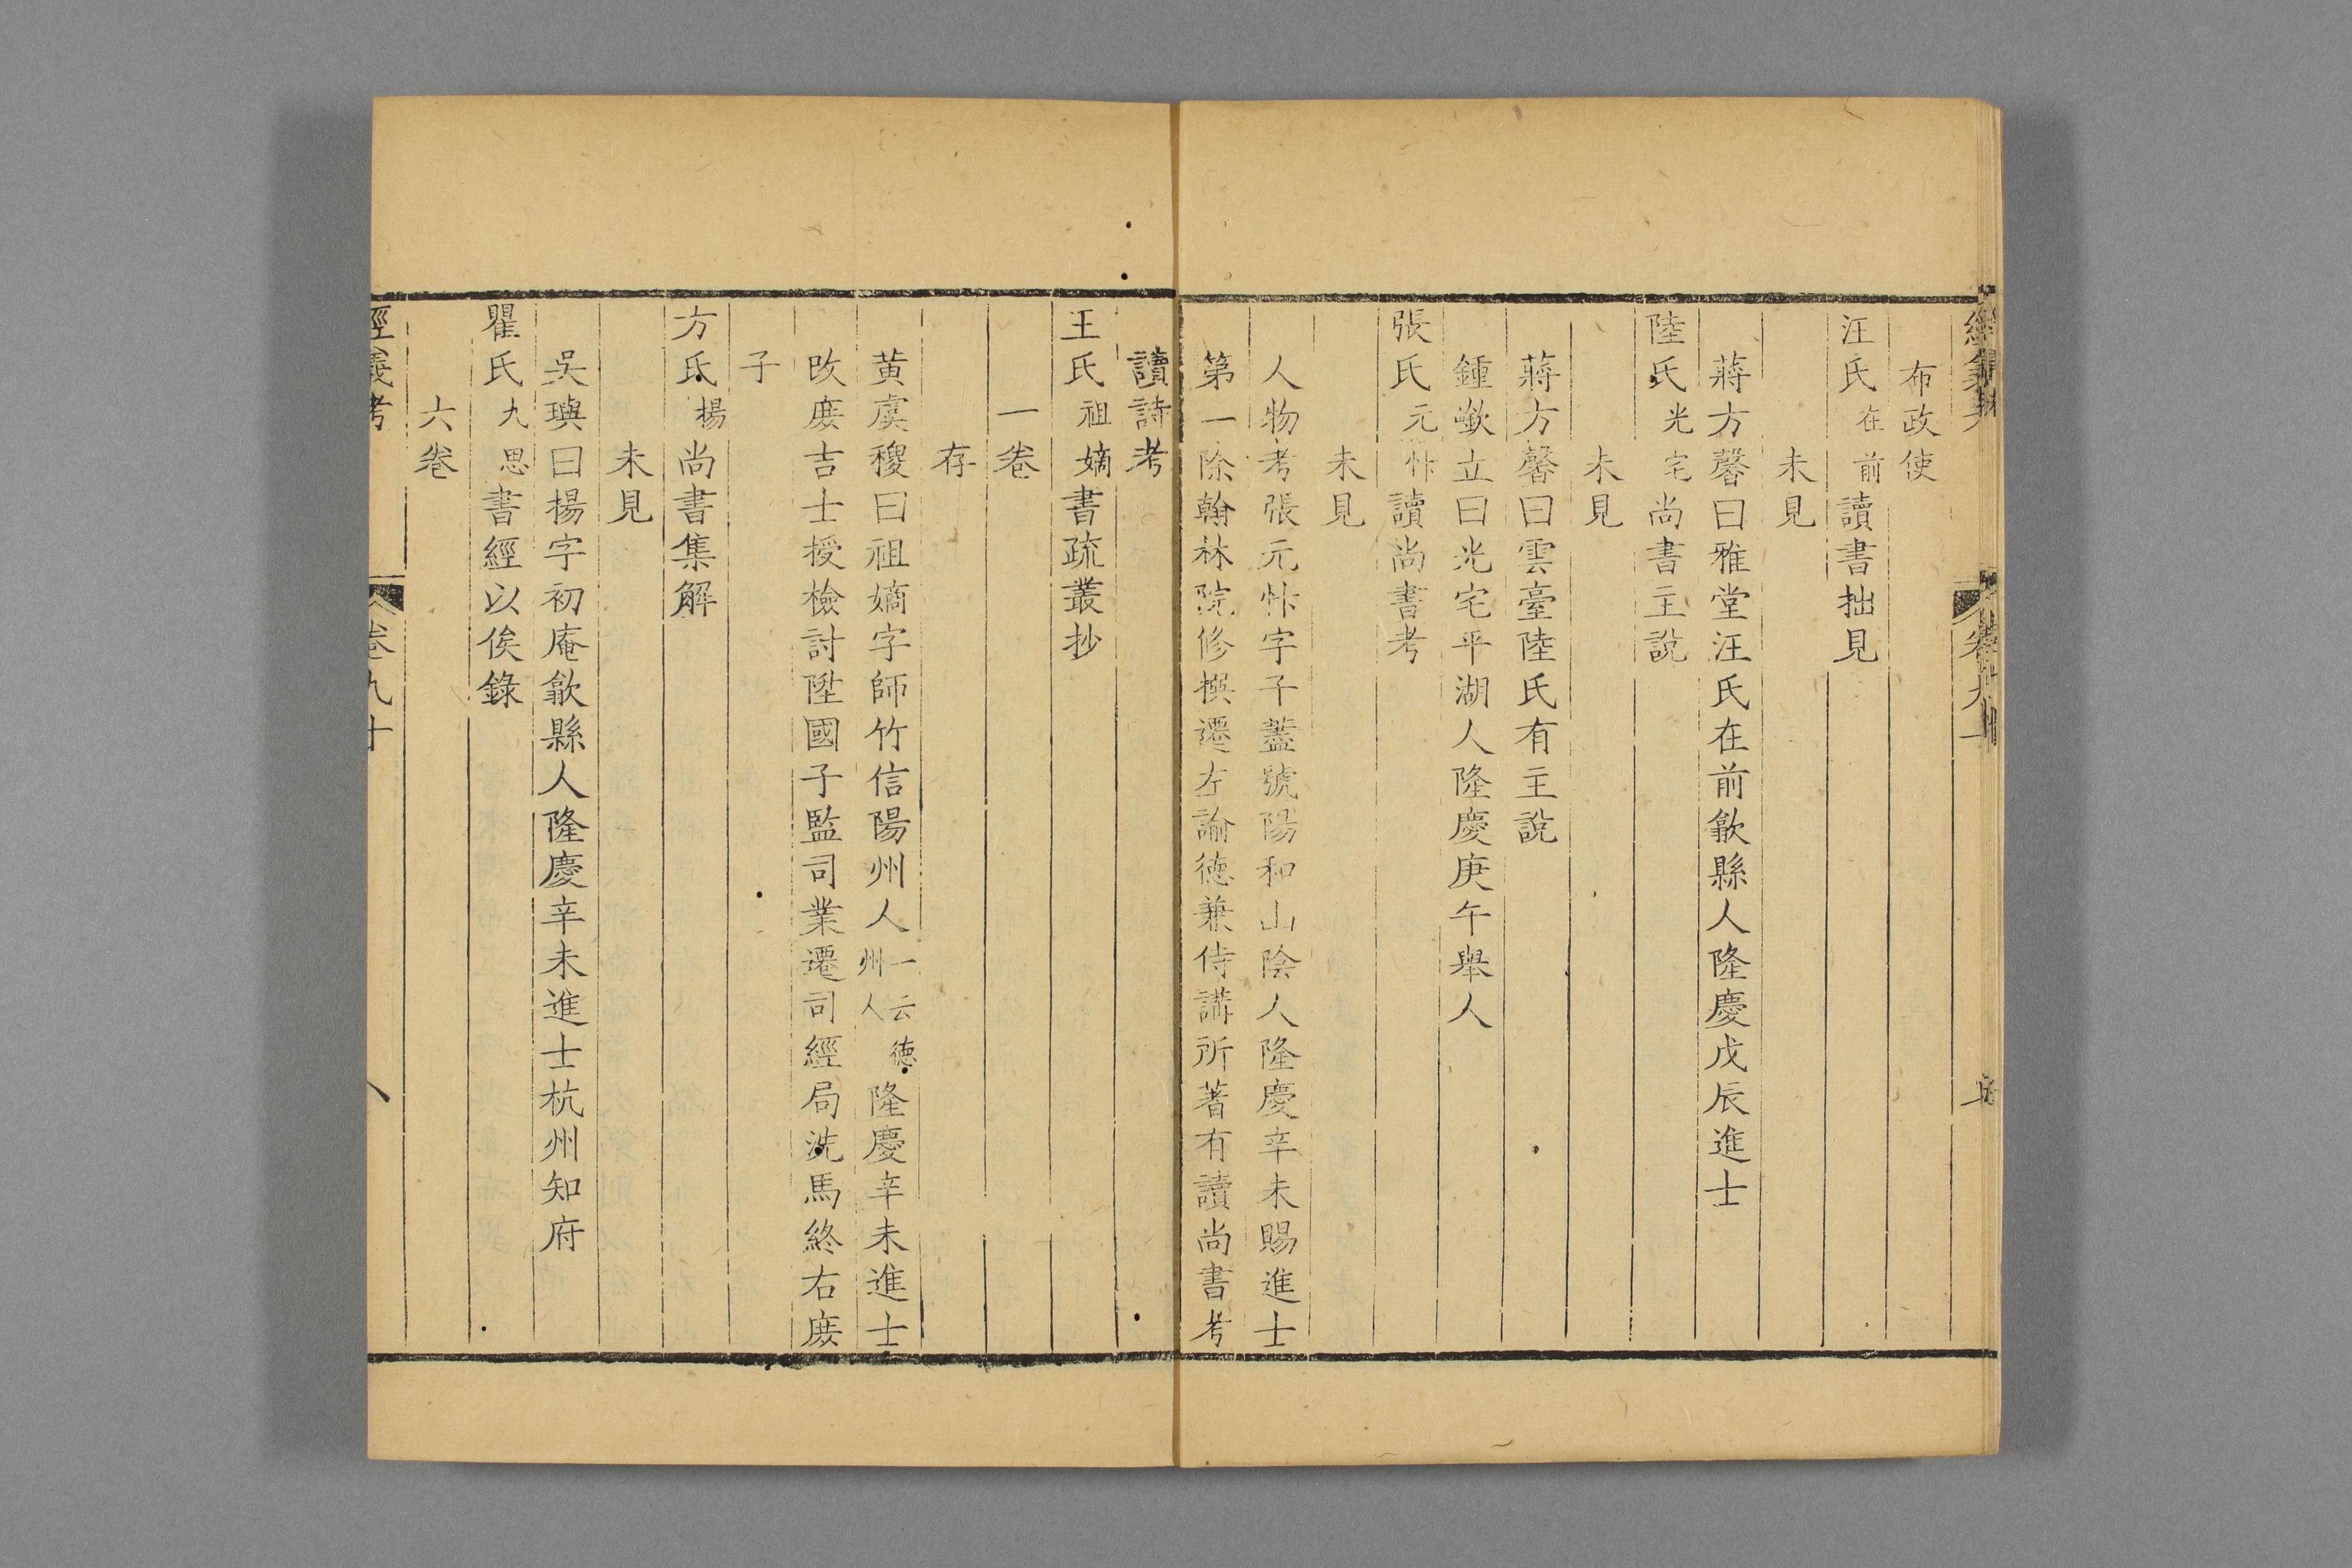 布政使
汪氏在前讀書拙見
未見
蔣方馨曰雅堂汪氏在前歙縣人隆慶戊辰進士
陸氏光宅尚書主說
未見
蔣方馨曰雲臺陸氏有主說
鍾歖立曰光宅平湖人隆慶庚午舉人
張氏元忭讀尚書考
未見
人物考張元忭字子藎號陽和山陰人隆慶辛未賜進士
第一除翰林院修撰遷左諭德兼侍講所著有讀尚書考
讀詩考
王氏祖嫡書疏叢抄
一卷
存
黃虞稷曰祖嫡字師竹信陽州人一云德州人隆慶辛未進士
改庶吉士授檢討陞國子監司業遷司經局洗馬終右庶
子
方氏揚尚書集解
未見
吳璵曰揚字初庵歙縣人隆慶辛未進士杭州知府
瞿氏九思書經以俟錄
六卷
經義考 卷九十 八